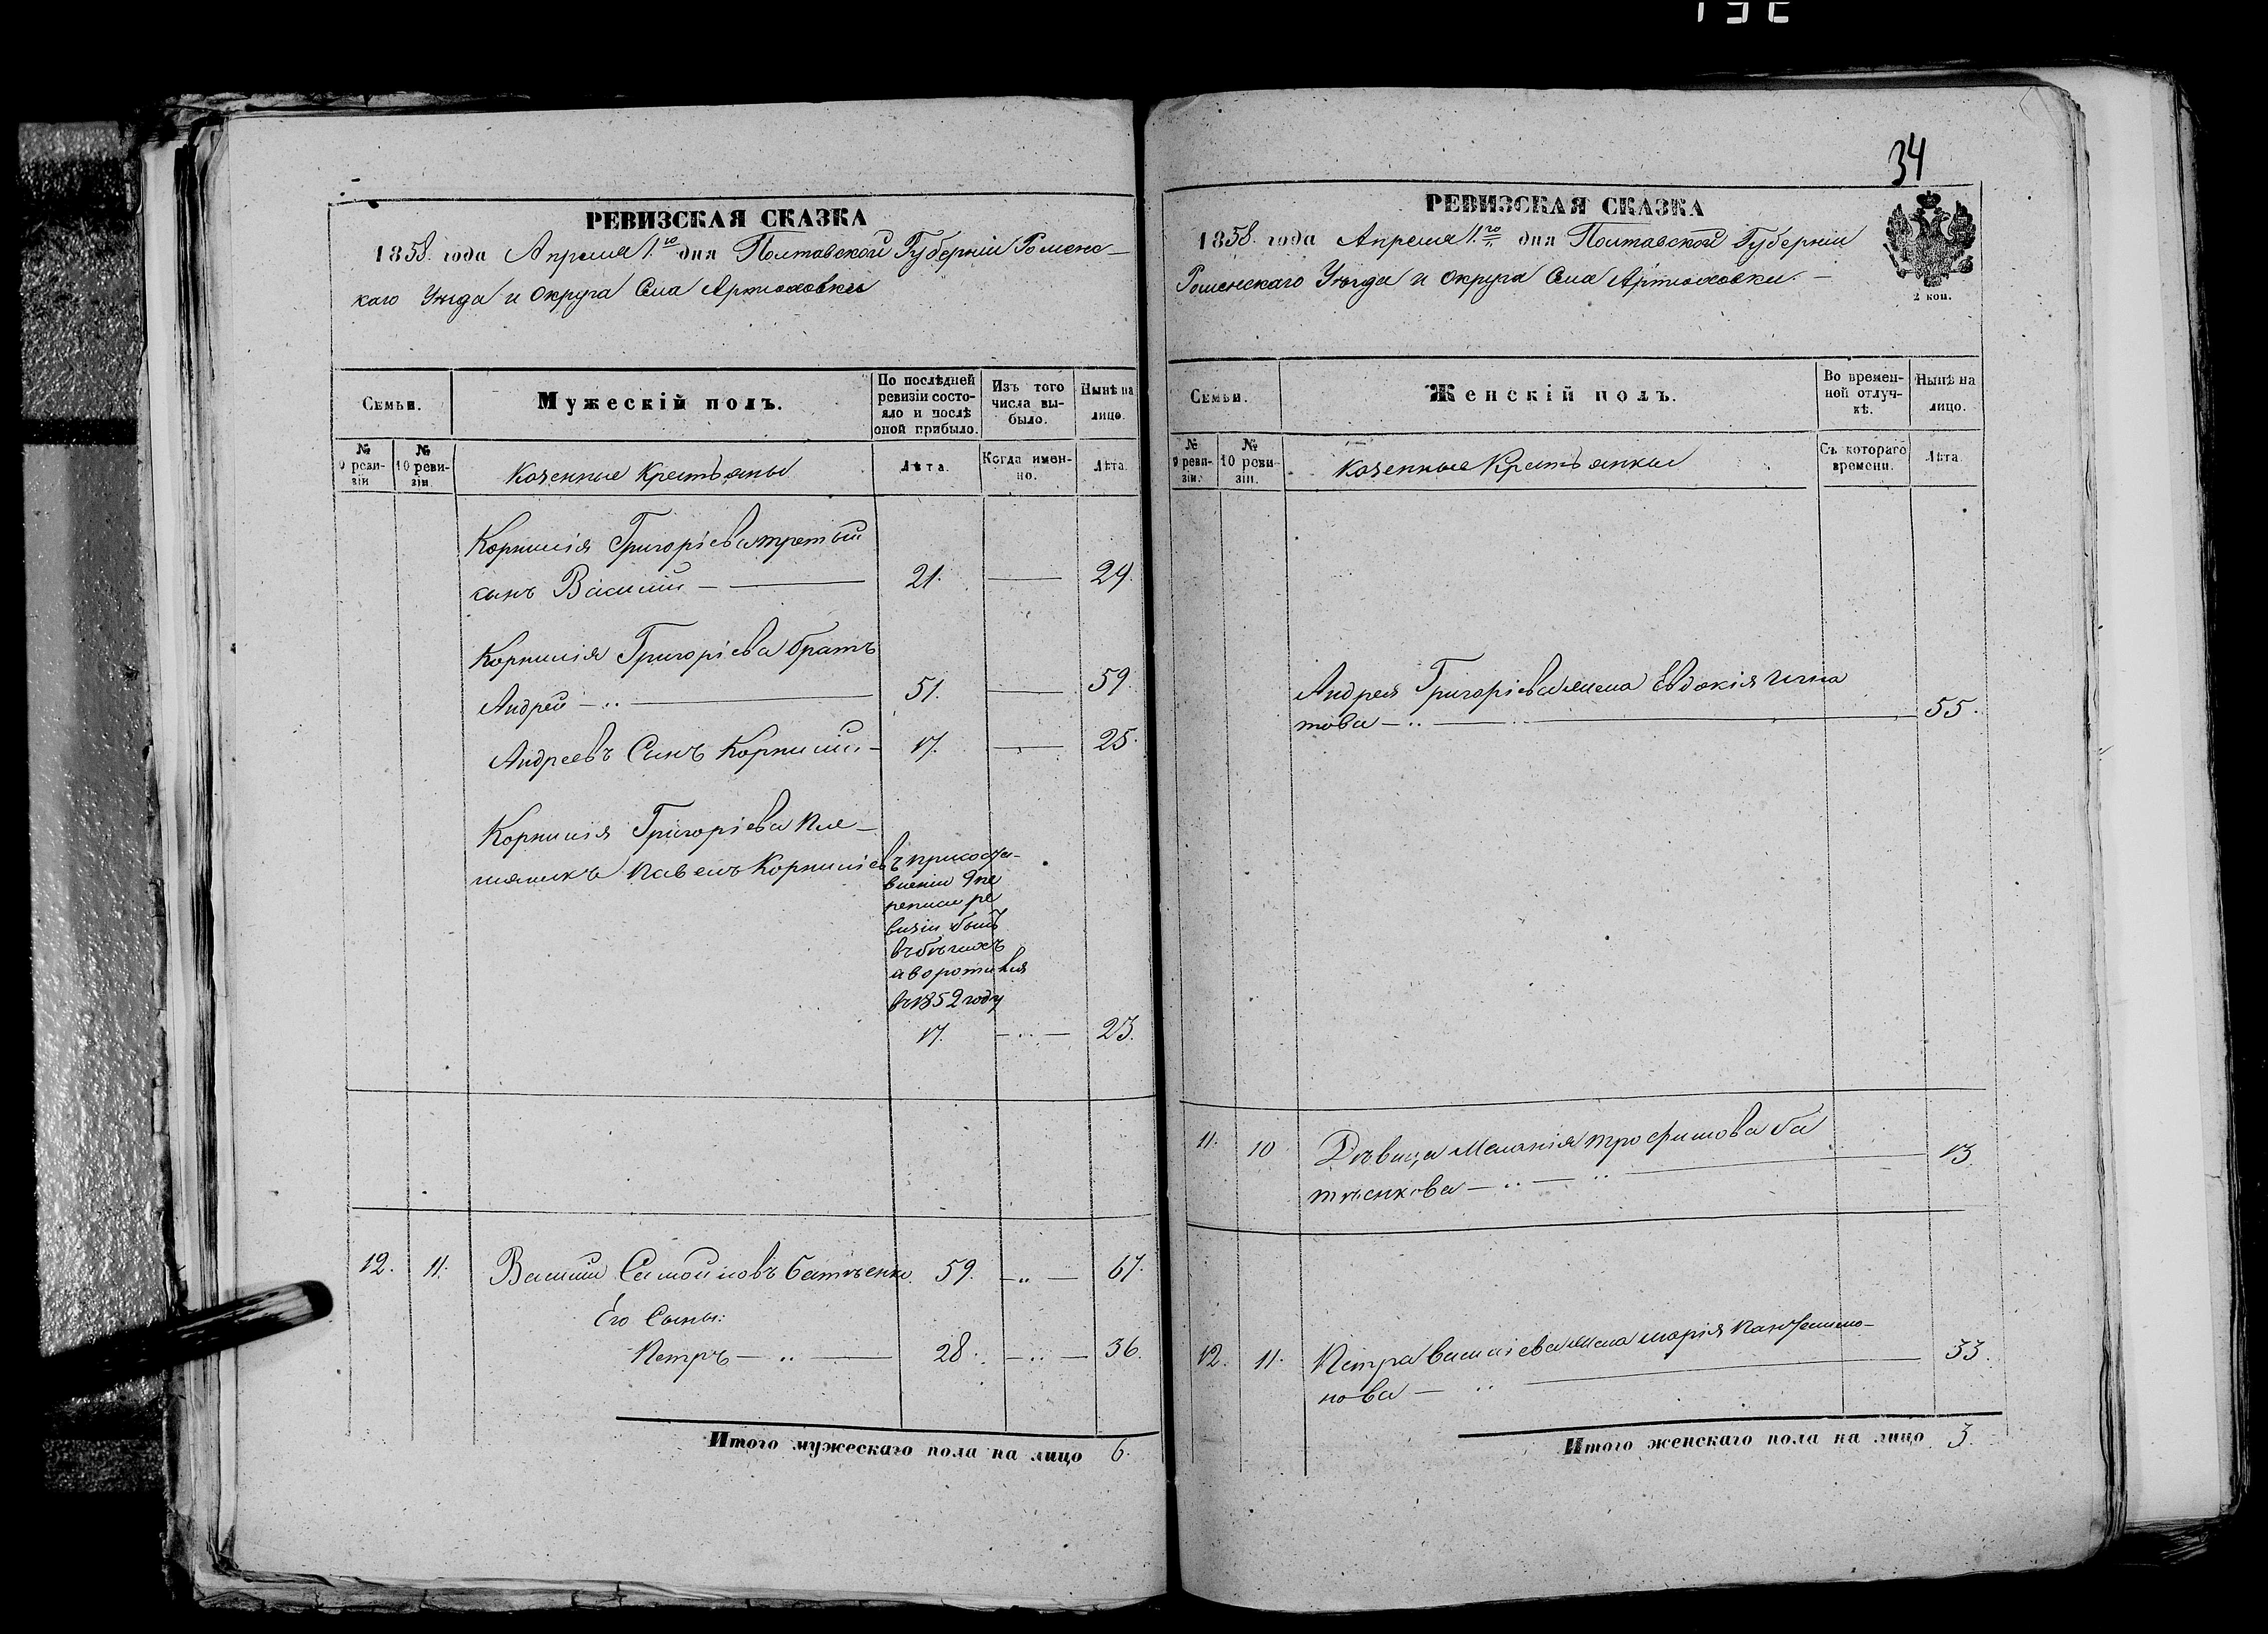 34
РЕВИЗСКАЯ СКАЗКА
1858. года Апреля 1.го дня Полтавской Губерніи Роменс-
каго Уезда и Округа Села Артюховки
Семьи.
Мужескій полъ.
По послѣдней ревизіи состояло и послѣ оной прибыло.
Изъ того числа выбыло.
Нынѣ на лицо.
№ 9 ревизіи
№ 10 ревизіи.
Казенные Крестьяны
Лѣта.
Когда именно.
Лѣта.
Корнилія Григоріева третий
сынъ Василий — 21. — 29.
Корнилія Григоріева братъ
Андрей — 51. — 59.
Андреевъ Сынъ Корнилий — 17. — 25.
Корнилія Григоріева пле-
мяникъ Павелъ Корниліевъ при соста-
влении 9 пе
реписи ре
визіи былъ
въ бѣгахъ
а воротился
въ 1852 году
17. — 23.
12. 11. Василий Самойловъ Батченко 59. — 67
Его Сыны:
Петръ — 28. — 36.
Итого мужескаго пола на лицо 6.
РЕВИЗСКАЯ СКАЗКА
1858. года Апреля 1.го дня Полтавской Губерніи
Роменскаго Уезда и Округа Села Артюховки. —
2 коп.
Семьи.
Женскій полъ.
Во временной отлучкѣ.
Нынѣ на лицо.
№ 9 ревизіи.
№ 10 ревизіи.
Казенные Крестьянки
Съ котораго времени.
Лѣта
Андрея Григоріева жена Евдокія Игна
това — 55.
11. 10 Дѣвица Меланія Трофимова Ба
тченкова — 13.
12. 11. Петра Василіева жена Марія Пантелимо-
нова — 33.
Итого женскаго пола на лицо 3.